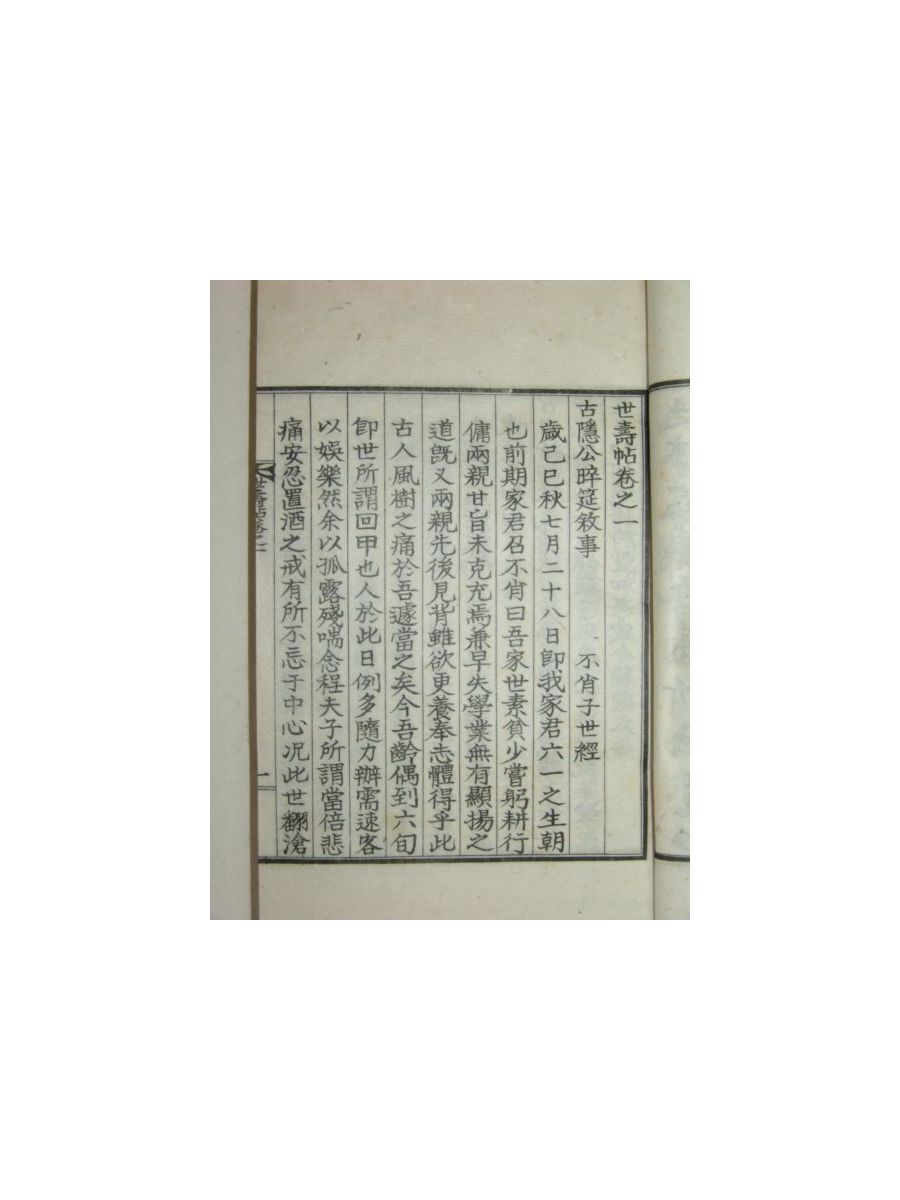 世壽帖卷之一
古隱公晬筵敘事 不肖子世經
歲己巳秋七月二十八日卽我家君六一之生朝
也前期家君召不肖曰吾家世素貧少嘗躬耕行
傭兩親甘旨未克充焉兼早失學業無有顯揚之
道旣又兩親先後見背雖欲更養奉志體得乎此
古人風樹之痛於吾遽當之矣今吾齡偶到六旬
卽世所謂回甲也人於此日例多隨力辦需速客
以娛樂然余以孤露殘喘念程夫子所謂當倍悲
痛安忍置酒之戒有所不忘于中心况此世飜滄
世壽帖卷之一
一